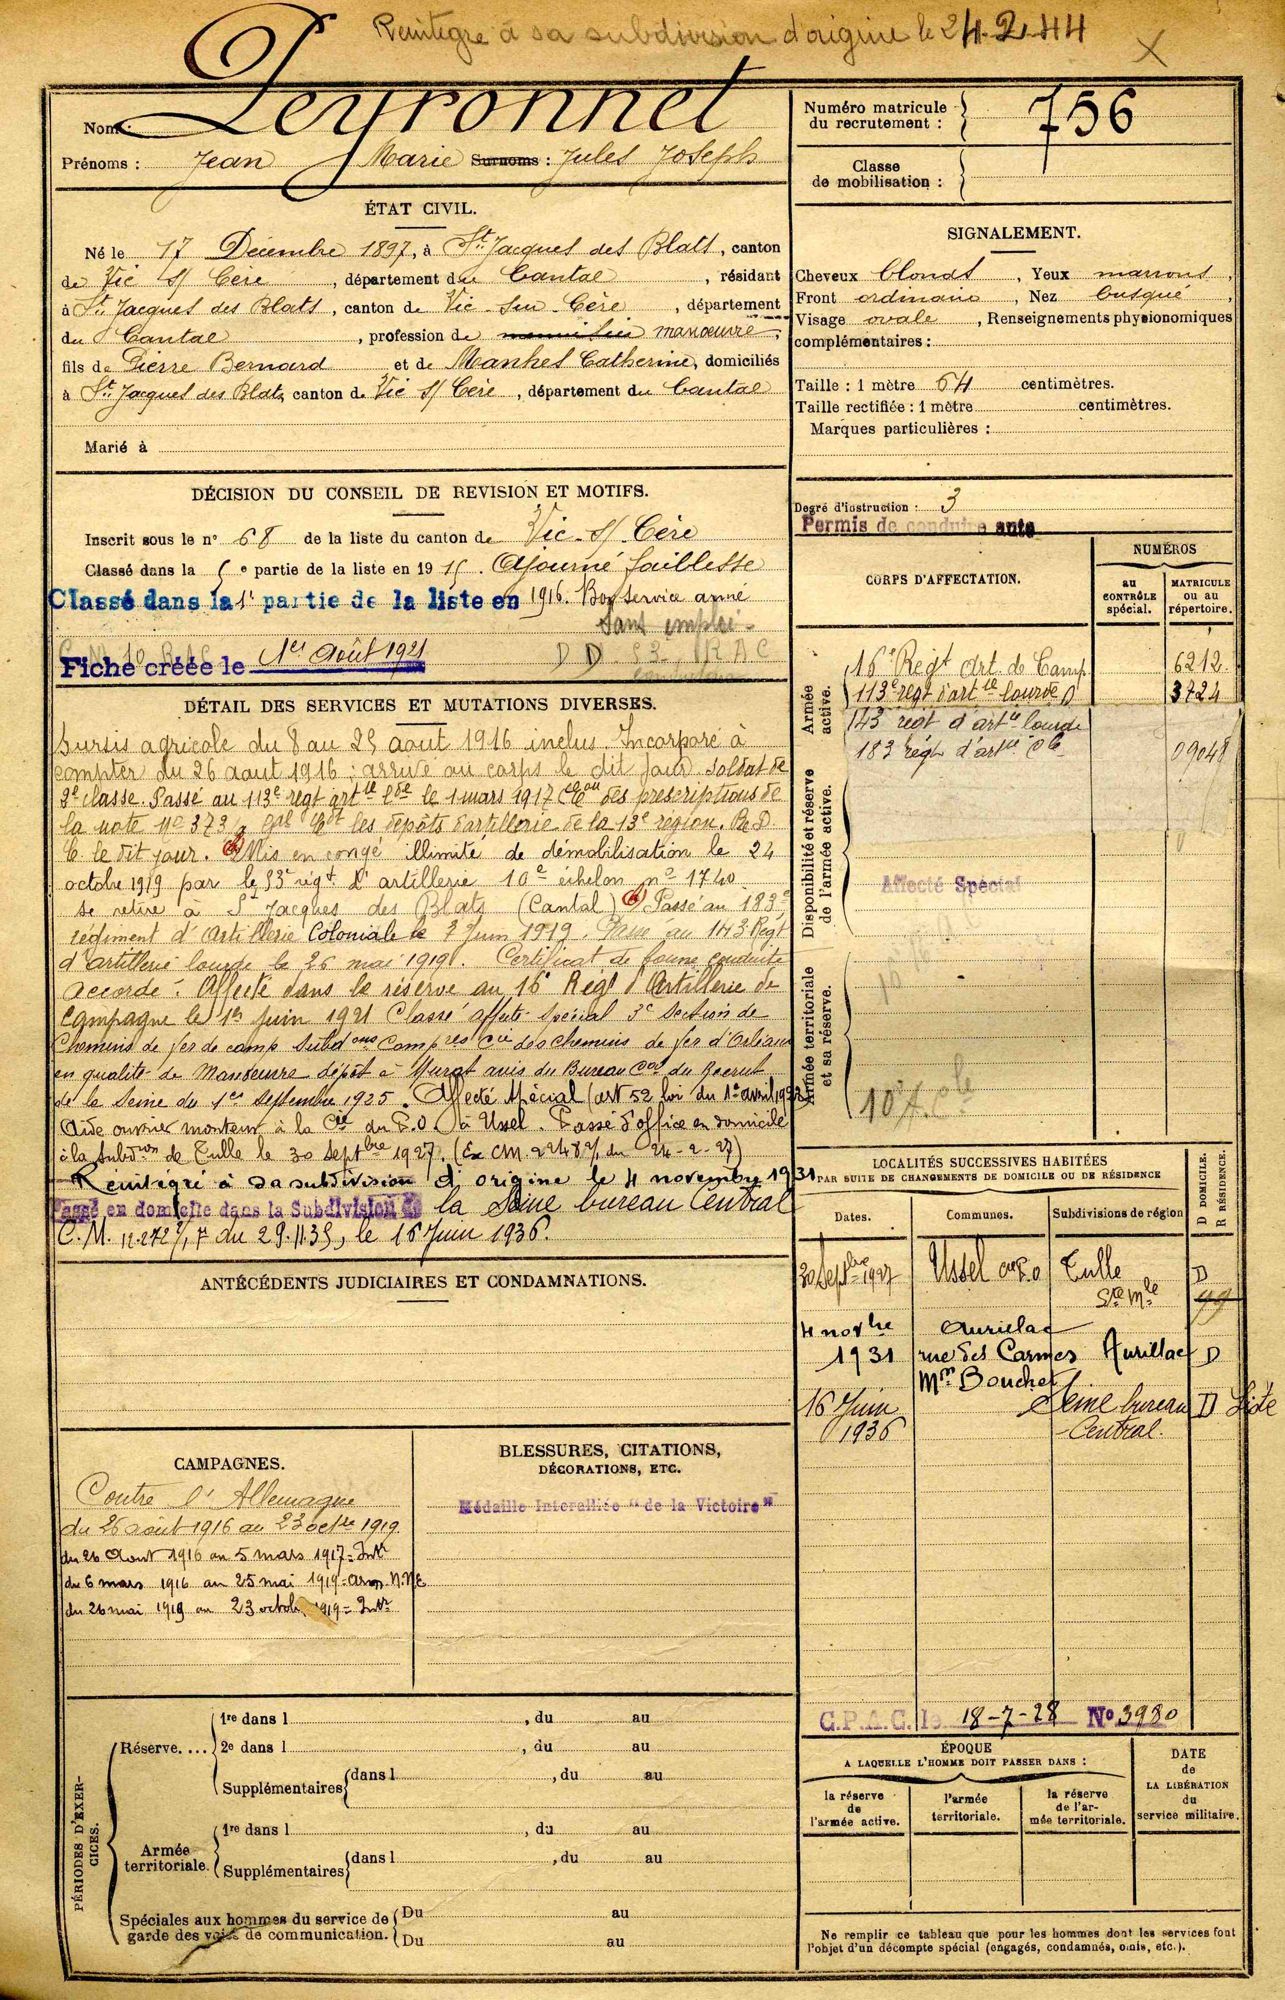 Réintégré à sa subdivision d'origine le 24-2-44
X
Nom : Peyronnet
Prénoms : Jean Marie Surnoms : Jules Joseph
ÉTAT CIVIL.
Né le 17 Décembre 1897, à St Jacques des Blats, canton
de Vic s/ Cère, département du Cantal, résidant
à St Jacques des Blats, canton de Vic-sur-Cère, département
du Cantal, profession de manœuvre,
fils de Pierre Bernard et de Manhes Catherine, domiciliés
à St Jacques des Blats canton de Vic s/ Cère, département du Cantal
Marié à
DÉCISION DU CONSEIL DE REVISION ET MOTIFS.
Inscrit sous le n° 68 de la liste du canton de Vic-s/-Cère
Classé dans la 5e partie de la liste en 1915. Ajourné faiblesse
Classé dans la 1e partie de la liste en 1916. Bon service armé
Sans emploi-
Fiche créée le 1er Août 1921
DD 53 RAC
DÉTAIL DES SERVICES ET MUTATIONS DIVERSES.
Sursis agricole du 8 au 25 aout 1916 inclus. Incorporé à
compter du 26 aout 1916; arrivé au corps le dit jour soldat de
2e classe. Passé au 113e regt artie Lde le 1 mars 1917 des prescriptions de
la note no 373 gal les dépôts d'artillerie de la 13e région. R. D.
C le dit jour. Mis en congé illimité de démobilisation le 24
octobre 1919 par le 53e régt d'artillerie 10e échelon no 1740
se retire à St Jacques des Blats (Cantal) Passé au 183e
régiment d'Artillerie Coloniale le 7 Juin 1919. Passé au 143 Regt
d'artillerie lourde le 26 mai 1919. Certificat de bonne conduite
accordé. Affecté dans la réserve au 16e Regt d'Artillerie de
Campagne le 1er Juin 1921 Classé affecté spécial 3e Section de
Chemins de fer de camp Subdons Compres Cie des chemins de fer d'Orléans
en qualité de Manœuvre dépôt à Murat avis du Bureau Cal du Recrut
de la Seine du 1er septembre 1925. Affecté spécial (art 52 loi du 1er avril 1923)
Aide ouvrier monteur à la Cie du P.O. à Ussel. Passé d'office en domicile
à la subdion de Tulle le 30 Septbre 1927. (Ex CM 2248 2/ du 24-2-27)
Réintégré à sa subdivision d'origine le 4 novembre 1931
Passé en domicile dans la Subdivision de la Seine bureau Central
C.M. 12.272 /7 du 29.11.35, le 16 Juin 1936.
ANTÉCÉDENTS JUDICIAIRES ET CONDAMNATIONS.
CAMPAGNES.
Contre l'Allemagne
du 26 août 1916 au 23 octbre 1919
du 26 Aout 1916 au 5 mars 1917 = Intr
du 6 mars 1916 au 25 mai 1919 = arm. N.NE
du 26 mai 1919 au 23 octob 1919 = Intr
BLESSURES, CITATIONS,
DÉCORATIONS, ETC.
Médaille Interalliée "de la Victoire"
PÉRIODES D'EXERCICES.
Réserve....
1re dans l , du au
2e dans l , du au
Supplémentaires dans l , du au
Armée territoriale.
1re dans l , du au
Supplémentaires dans l , du au
Spéciales aux hommes du service de
garde des voies de communication.
Du au
Du au
Numéro matricule
du recrutement : 756
Classe
de mobilisation :
SIGNALEMENT.
Cheveux blonds, Yeux marrons,
Front ordinaire, Nez busqué,
Visage ovale, Renseignements physionomiques
complémentaires :
Taille : 1 mètre 64 centimètres.
Taille rectifiée : 1 mètre centimètres.
Marques particulières :
Degré d'instruction : 3
Permis de conduire auto
CORPS D'AFFECTATION.
NUMÉROS
au
CONTRÔLE
spécial.
MATRICULE
ou au
répertoire.
Armée active.
16e Regt Art. de Camp. 6212
113e regt d'artie lourde D 3724
143 régt d'artie lourde
183 régt d'artie Cle 09048
Disponibilité et réserve
de l'armée active.
Affecté Spécial
Armée territoriale
et sa réserve.
10e A. Cle
LOCALITÉS SUCCESSIVES HABITÉES
PAR SUITE DE CHANGEMENTS DE DOMICILE OU DE RÉSIDENCE
D DOMICILE.
R RÉSIDENCE.
Dates.
Communes.
Subdivisions de région
30 Septbre 1927 Ussel P.O Tulle D
Ste Mle 99
4 novbre 1931
Aurillac
rue des Carmes Aurillac D
Mon Bouchet
16 Juin 1936
Seine bureau Central. D
C.P.A.C. le 18-7-28 No 3980
ÉPOQUE
A LAQUELLE L'HOMME DOIT PASSER DANS :
la réserve
de
l'armée active.
l'armée
territoriale.
la réserve
de l'ar-
mée territoriale.
DATE
de
LA LIBÉRATION
du
service militaire.
Ne remplir ce tableau que pour les hommes dont les services font
l'objet d'un décompte spécial (engagés, condamnés, omis, etc.).